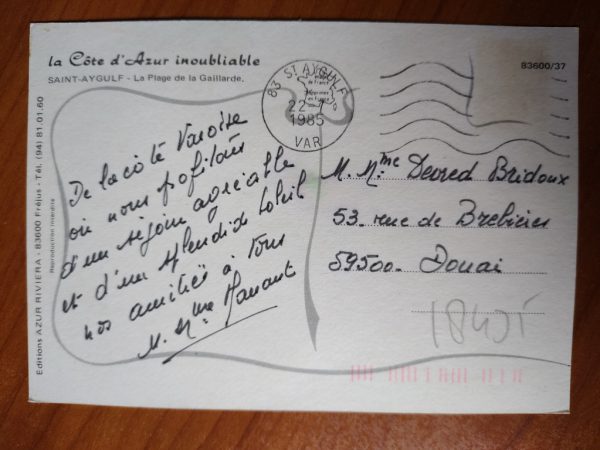 la Côte d'Azur inoubliable
SAINT-AYGULF - La Plage de la Gaillarde.
83600/37
83 ST AYGULF
22-7
1985
VAR
De la côte Varoise
où nous profitons
d'un séjour agréable
et d'un splendide soleil
nos amitiés à tous
M. Mme
M. Mme Devred Bridoux
53. rue de Brebières
59500. Douai
Editions AZUR RIVIERA - 83600 Fréjus - Tél. (94) 81.01.60
Reproduction interdite